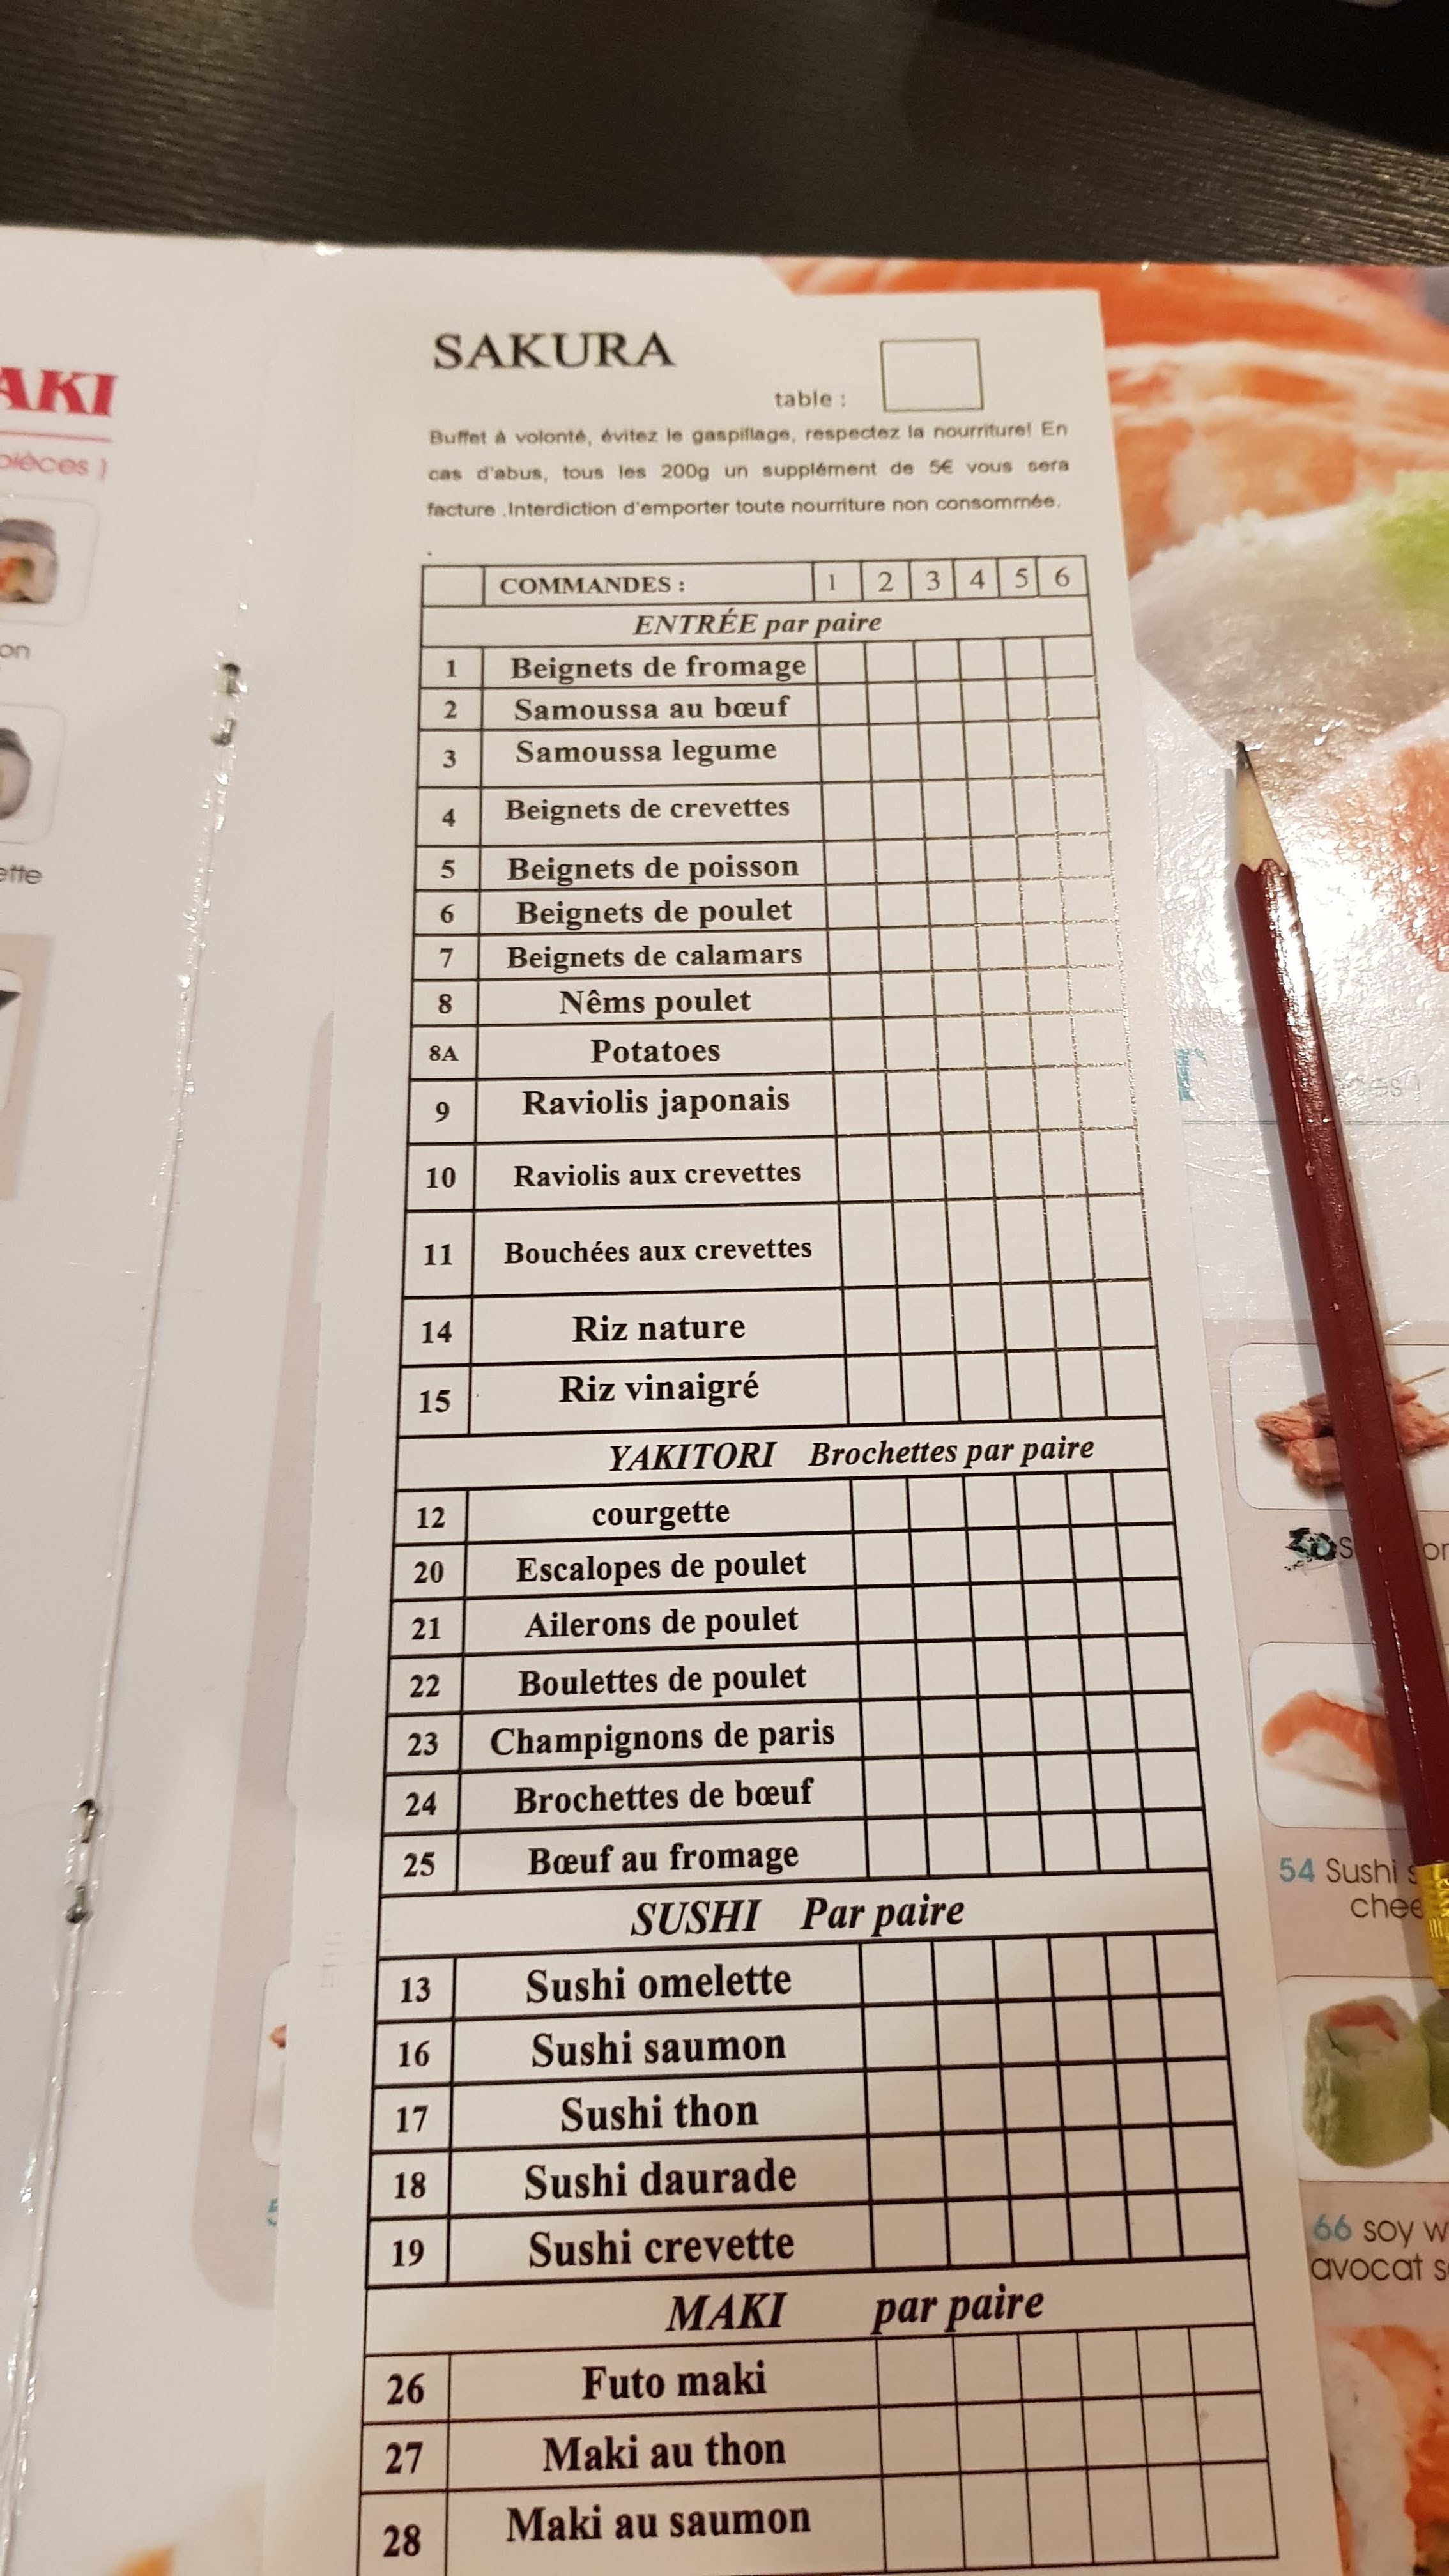 SAKURA
table :
Buffet à volonté, évitez le gaspillage, respectez la nourriture! En
cas d'abus, tous les 200g un supplément de 5€ vous sera
facture .Interdiction d'emporter toute nourriture non consommée.
COMMANDES : 1 2 3 4 5 6
ENTRÉE par paire
1 Beignets de fromage
2 Samoussa au bœuf
3 Samoussa legume
4 Beignets de crevettes
5 Beignets de poisson
6 Beignets de poulet
7 Beignets de calamars
8 Nêms poulet
8A Potatoes
9 Raviolis japonais
10 Raviolis aux crevettes
11 Bouchées aux crevettes
14 Riz nature
15 Riz vinaigré
YAKITORI Brochettes par paire
12 courgette
20 Escalopes de poulet
21 Ailerons de poulet
22 Boulettes de poulet
23 Champignons de paris
24 Brochettes de bœuf
25 Bœuf au fromage
SUSHI Par paire
13 Sushi omelette
16 Sushi saumon
17 Sushi thon
18 Sushi daurade
19 Sushi crevette
MAKI par paire
26 Futo maki
27 Maki au thon
28 Maki au saumon
AKI
pièces )
on
ette
54 Sushi s
chee
66 soy w
avocat s